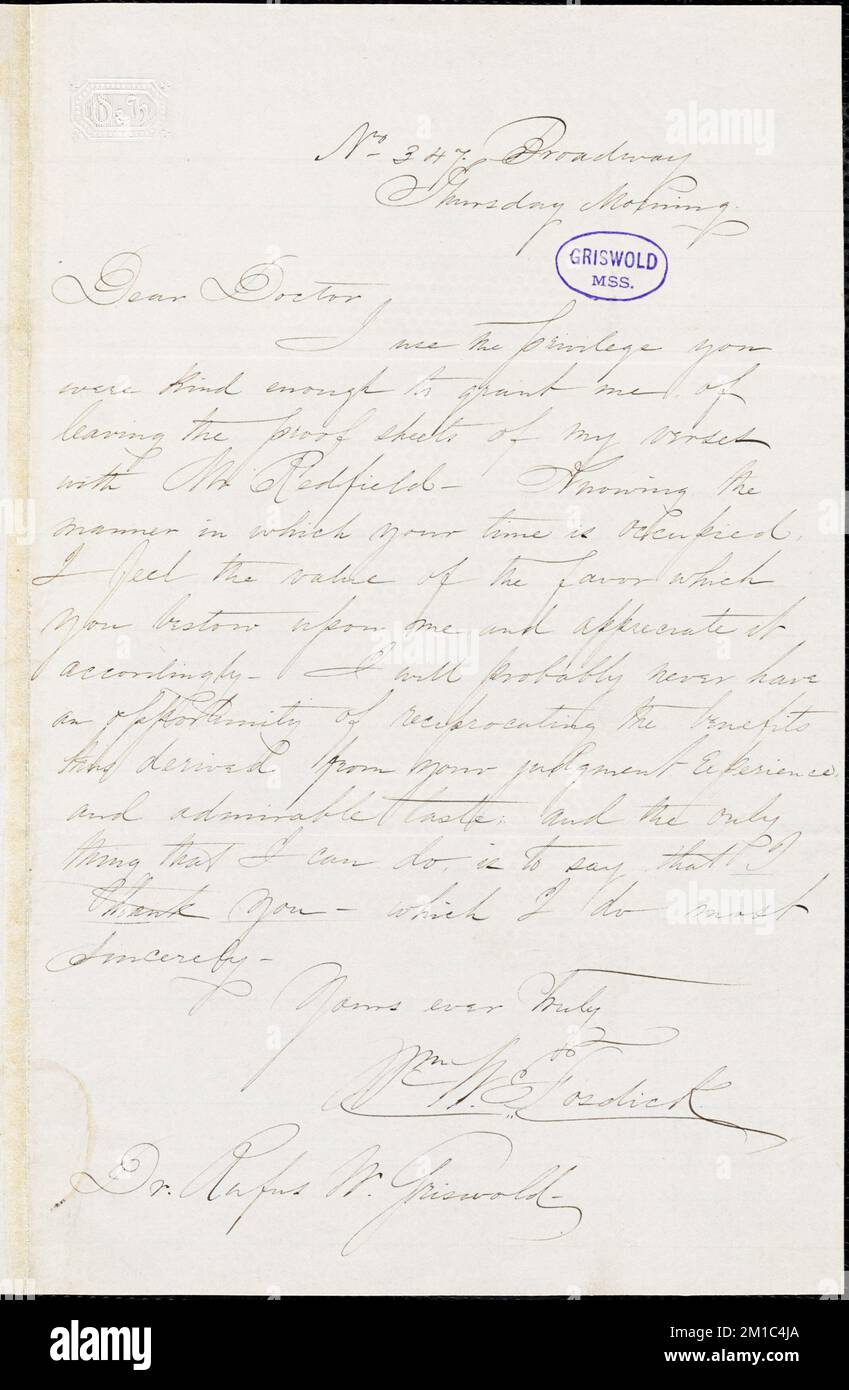 No 347 Broadway
Thursday Morning.
GRISWOLD
MSS.
Dear Doctor
I use the privilege you
were kind enough to grant me, of
leaving the proof sheets of my verses
with Mr Redfield - Knowing the
manner in which your time is occupied,
I feel the value of the favor which
you bestow upon me and appreciate it
accordingly - I will probably never have
an opportunity of reciprocating the benefits
thus derived, from your judgment experience,
and admirable taste; and the only
thing that I can do, is to say, that I
thank you - which I do most
sincerely -
Yours ever truly
Wm W. Fosdick.
Dr. Rufus W. Griswold -
alamy
Image ID: 2M1C4JA
www.alamy.com